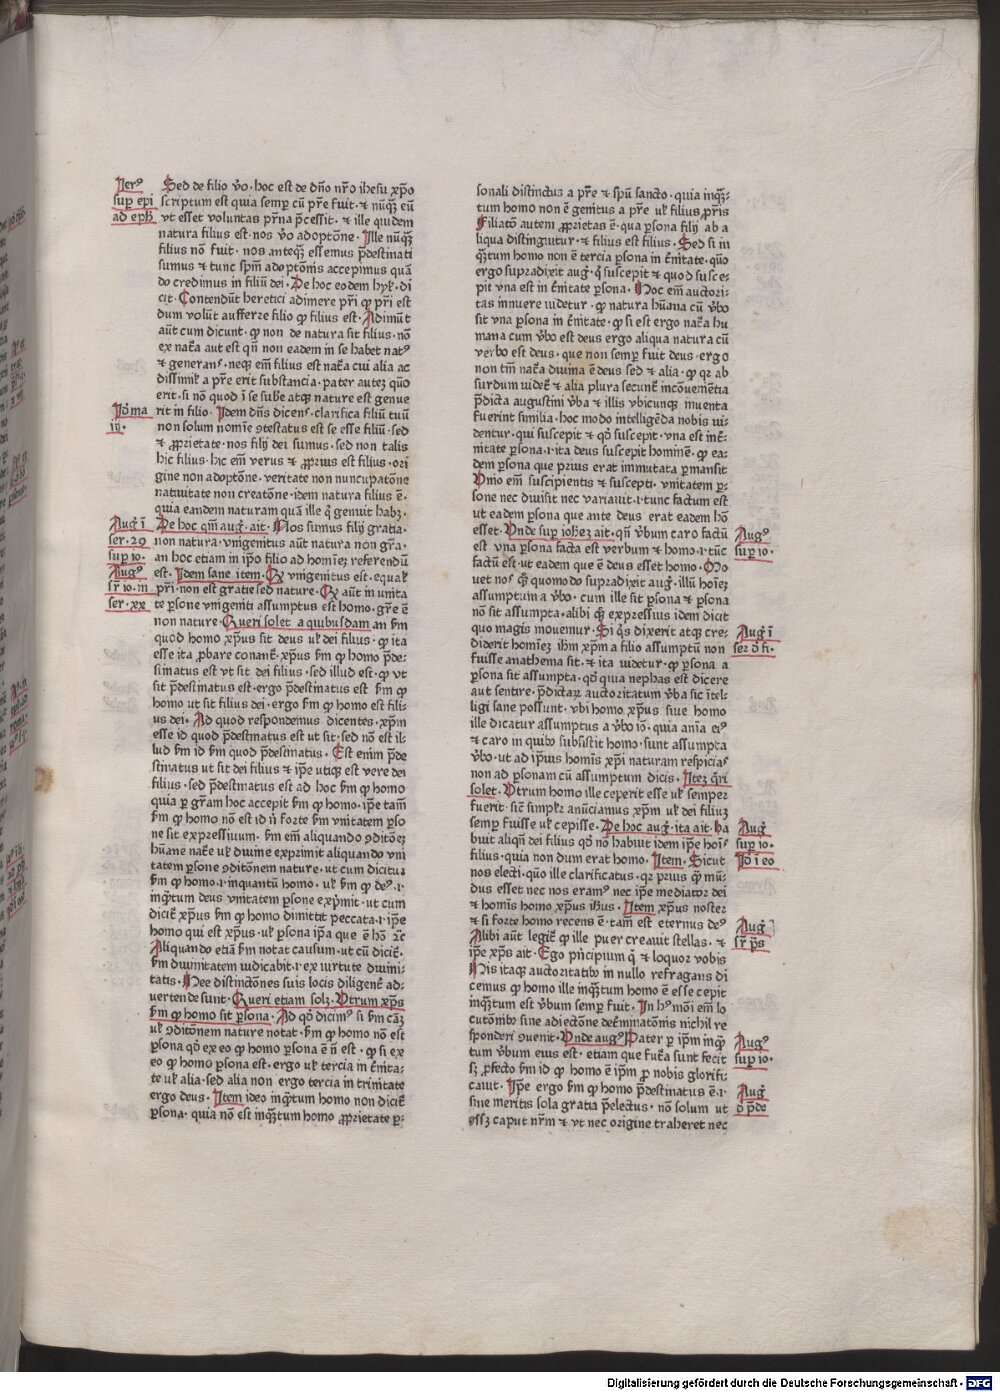 Jerꝰ
sup epi
ad eph
Sed de filio v̄o · hoc est de dn̄o nr̄o ihesu xp̄o
scriptum est quia semp cū pr̄e fuit · ⁊ nūq̄ eū
vt esset voluntas pr̄na p̄cessit · ⁊ ille quidem
natura filius est · nos v̄o adoptōne · Ille nūq̄
filius nō fuit · nos anteq̄ essemus p̄destinati
sumus ⁊ tunc spm̄ adoptōnis accepimus quā
do credimus in filiū dei · De hoc eodem hyl̄ · di
cit · Contendūt heretici adimere pr̄i ꝙ pr̄i est
dum volūt aufferre filio ꝙ filius est · Adimūt
aūt cum dicunt · ꝙ non de natura sit filius · nō
ex nat̄a aut est qn̄ non eadem in se habet natꝰ
⁊ generans · neqꝫ em̄ filius est nat̄a cui alia ac
dissimil̄ a pr̄e erit substancia · pater autez quō
erit · si nō quod ī se sube atqꝫ nature est genue
Io̅ma
iij ·
rit in filio · Idem dn̄s dicens · clarifica filiū tuū
non solum nomīe ꝯtestatus est se esse filiū · sed
⁊ ꝓprietate · nos filij dei sumus · sed non talis
hic filius · hic em̄ verus ⁊ ꝓprius est filius · ori
gine non adoptōne · veritate non nuncupatōne
natiuitate non creatōne · idem natura filius ē ·
quia eandem naturam quā ille q̄ genuit habꝫ ·
Auḡ ī
ser · 29
sup io ·
Augꝰ
sr̄ io · in
ser · xx
De hoc qm̄ auḡ · ait · Nos sumus filij gratia ·
non natura · vnigenitus aūt natura non gr̄a ·
an hoc etiam in ip̄o filio ad homiez referendū
est · Idem sane item · Qꝛ vnigenitus est · equal̄
pr̄i · non est gratie sed nature · Qꝛ aūt in vnita
te psone vnigeniti assumptus est homo · gr̄e ē
non nature · Queri solet a quibusdam an s̄m
quod homo xp̄us sit deus ul̄ dei filius · ꝙ ita
esse ita ꝓbare conant̄ · xp̄us s̄m ꝙ homo p̄de-
stinatus est vt sit dei filius · sed illud est · ꝙ vt
sit p̄destinatus est · ergo p̄destinatus est s̄m ꝙ
homo ut sit filius dei · ergo s̄m ꝙ homo est fili
us dei · Ad quod respondemus dicentes · xp̄m
esse id quod p̄destinatus est ut sit · sed nō est il-
lud s̄m id s̄m quod p̄destinatus · Est enim p̄de
stinatus ut sit dei filius ⁊ ip̄e utiqꝫ est vere dei
filius · sed p̄destinatus est ad hoc s̄m ꝙ homo
quia ꝑ gr̄am hoc accepit s̄m ꝙ homo · ip̄e tam̄
s̄m ꝙ homo nō est id n̄ forte s̄m vnitatem pso
ne sit expressiuum · s̄m em̄ aliquando ꝯditōez
hūane nat̄e ul̄ diuine exprimit aliquando vni
tatem psone ꝯditōnem nature · ut cum dicitur
s̄m ꝙ homo · i · inquantū homo · ul̄ s̄m ꝙ deꝰ · i ·
inq̄tum deus vnitatem psone exp̄mit · ut cum
dicit̄ xp̄us s̄m ꝙ homo dimittit peccata · i · ip̄e
homo qui est xp̄us · ul̄ psona ip̄a que ē hō ⁊c̄
Aliquando etiā s̄m notat causum · ut cū dicit̄ ·
s̄m diuinitatem iudicabit · i · ex uirtute diuini-
tatis · Hee distinctōnes suis locis diligent̄ ad-
uertende sunt · Queri etiam solꝫ · Vtrum xp̄s
s̄m ꝙ homo sit psona · Ad qō dicimꝰ si s̄m cāꝫ
ul̄ ꝯditōnem nature notat · s̄m ꝙ homo nō est
psona qō ex eo ꝙ homo psona ē n̄ est · ꝙ si ex
eo ꝙ homo psona est · ergo ul̄ tercia in t̄nita-
te ul̄ alia · sed alia non ergo tercia in trinitate
ergo deus · Item ideo inq̄tum homo non dicit̄
psona · quia nō est inq̄tum homo ꝓprietate ꝑ-
sonali distinctus a pr̄e ⁊ spū sancto · quia inq̄-
tum homo non ē genitus a pre ul̄ filius pr̄is
Filiatō autem ꝓprietas ē · qua psona filij ab a
liqua distinguitur · ⁊ filius est filius · Sed si in
q̄tum homo non ē tercia psona in t̄nitate · quō
ergo supradixit auḡ · q̄ suscepit ⁊ quod susce-
pit vna est in t̄nitate psona · Hoc em̄ auctori-
tas innuere uidetur · ꝙ natura hūana cū v̄bo
sit vna psona in t̄nitate · ꝙ si est ergo nat̄a hu
mana cum v̄bo est deus ergo aliqua natura cū
verbo est deus · que non semp fuit deus · ergo
non tm̄ nat̄a diuina ē deus sed ⁊ alia · ꝙ qꝛ ab
surdum uidet̄ ⁊ alia plura secunt̄ incōuenientia
p̄dicta augustini v̄ba ⁊ illis vbicunqꝫ inuenta
fuerint similia · hoc modo intelligēda nobis ui-
dentur · qui suscepit ⁊ qō suscepit · vna est in t̄-
nitate psona · i · ita deus suscepit hominē · ꝙ ea-
dem psona que prius erat immutata pmansit
Vnio em̄ suscipientis ⁊ suscepti · vnitatem p-
sone nec diuisit nec variauit · i · tunc factum est
ut eadem psona que ante deus erat eadem hō
esset · Vnde sup iohez ait · qn̄ v̄bum caro factū
Augꝰ
sup io ·
est vna psona facta est verbum ⁊ homo · i · tūc
factū est · ut eadem que ē deus esset homo · Mo
uet nos q̄ quomodo supradixit auḡ · illū hoiez
assumptum a v̄bo · cum ille sit psona ⁊ psona
nō sit assumpta · alibi q̄ expressius idem dicit
quo magis mouemur · Si q̄s dixerit atqꝫ cre-
Auḡ ī
ser d̄ fi ·
diderit homiez ihm xp̄m a filio assumptū non
fuisse anathema sit · ⁊ ita uidetur · ꝙ psona a
psona sit assumpta · qō quia nephas est dicere
aut sentire · p̄dictaꝝ auctoritatum v̄ba sic ītel
ligi sane possunt · vbi homo xp̄us siue homo
ille dicatur assumptus a v̄bo iō · quia anīa eiꝰ
⁊ caro in quibꝰ subsistit homo · sunt assumpta
v̄bo · ut ad ip̄ius homīs xp̄i naturam respicias
non ad psonam cū assumptum dicis · Itez q̄ri
solet · Vtrum homo ille ceperit esse ul̄ semper
fuerit · sic̄ simplr̄ anūciamus xp̄m ul̄ dei filiuꝫ
semp fuisse ul̄ cepisse · De hoc auḡ · ita ait · ha
Auḡ
sup io ·
Iō i eo
buit aliqn̄ dei filius qō nō habuit idem ip̄e hoīs
filius · quia non dum erat homo · Item · Sicut
nos electi · quō ille clarificatus · qꝛ prius q̄ mū-
dus esset nec nos eramꝰ nec ip̄e mediator dei
⁊ homīs homo xp̄us ihūs · Item xp̄us noster
⁊ si forte homo recens ē · tam̄ est eternus deꝰ
Auḡ
sr̄ p̄s
Alibi aūt legit̄ ꝙ ille puer creauit stellas · ⁊
ip̄e xp̄s ait · Ego pn̄cipium q̄ ⁊ loquor vobis
His itaqꝫ auctoritatibꝰ in nullo refragans di
cemus ꝙ homo ille inq̄tum homo ē esse cepit
inq̄tum est v̄bum semp fuit · In hꝰmōi em̄ lo
cutōnibꝰ sine adiectōne det̄mīatōnis nichil re
sponderi ꝯuenit · Vnde augꝰ Pater ꝑ ip̄m inq̄
Augꝰ
sup io ·
tum v̄bum eius est · etiam que fut̄a sunt fecit
sꝫ ꝑfecto s̄m id ꝙ homo ē ip̄m ꝓ nobis glorifi-
cauit · Ip̄e ergo s̄m ꝙ homo p̄destinatus ē · i ·
Auḡ
d̄ p̄de
sine meritis sola gratia p̄electus · nō solum ut
essꝫ caput nr̄m ⁊ vt nec origine traheret nec
Digitalisierung gefördert durch die Deutsche Forschungsgemeinschaft - DFG